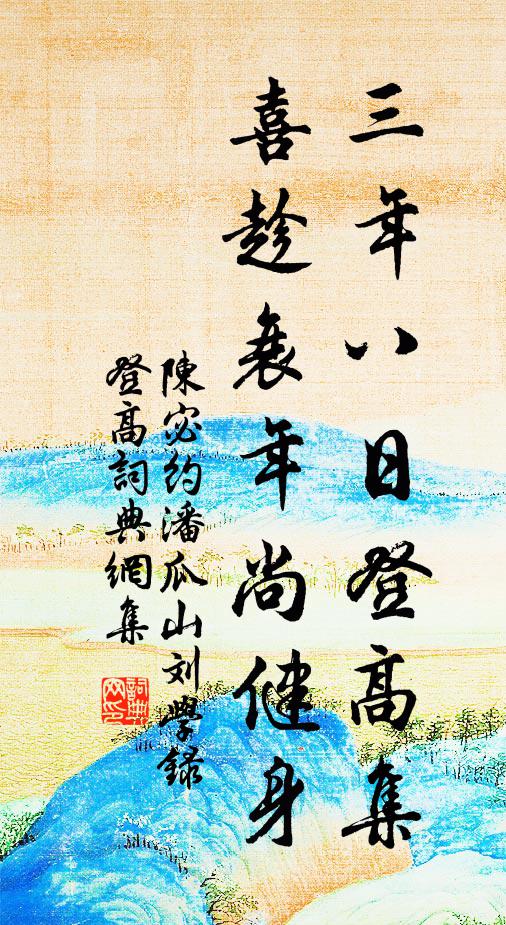 三年八日登高集
喜趁衰年尚健身
陳宓约潘瓜山刘學録
登高詞典網集
詞典
网印